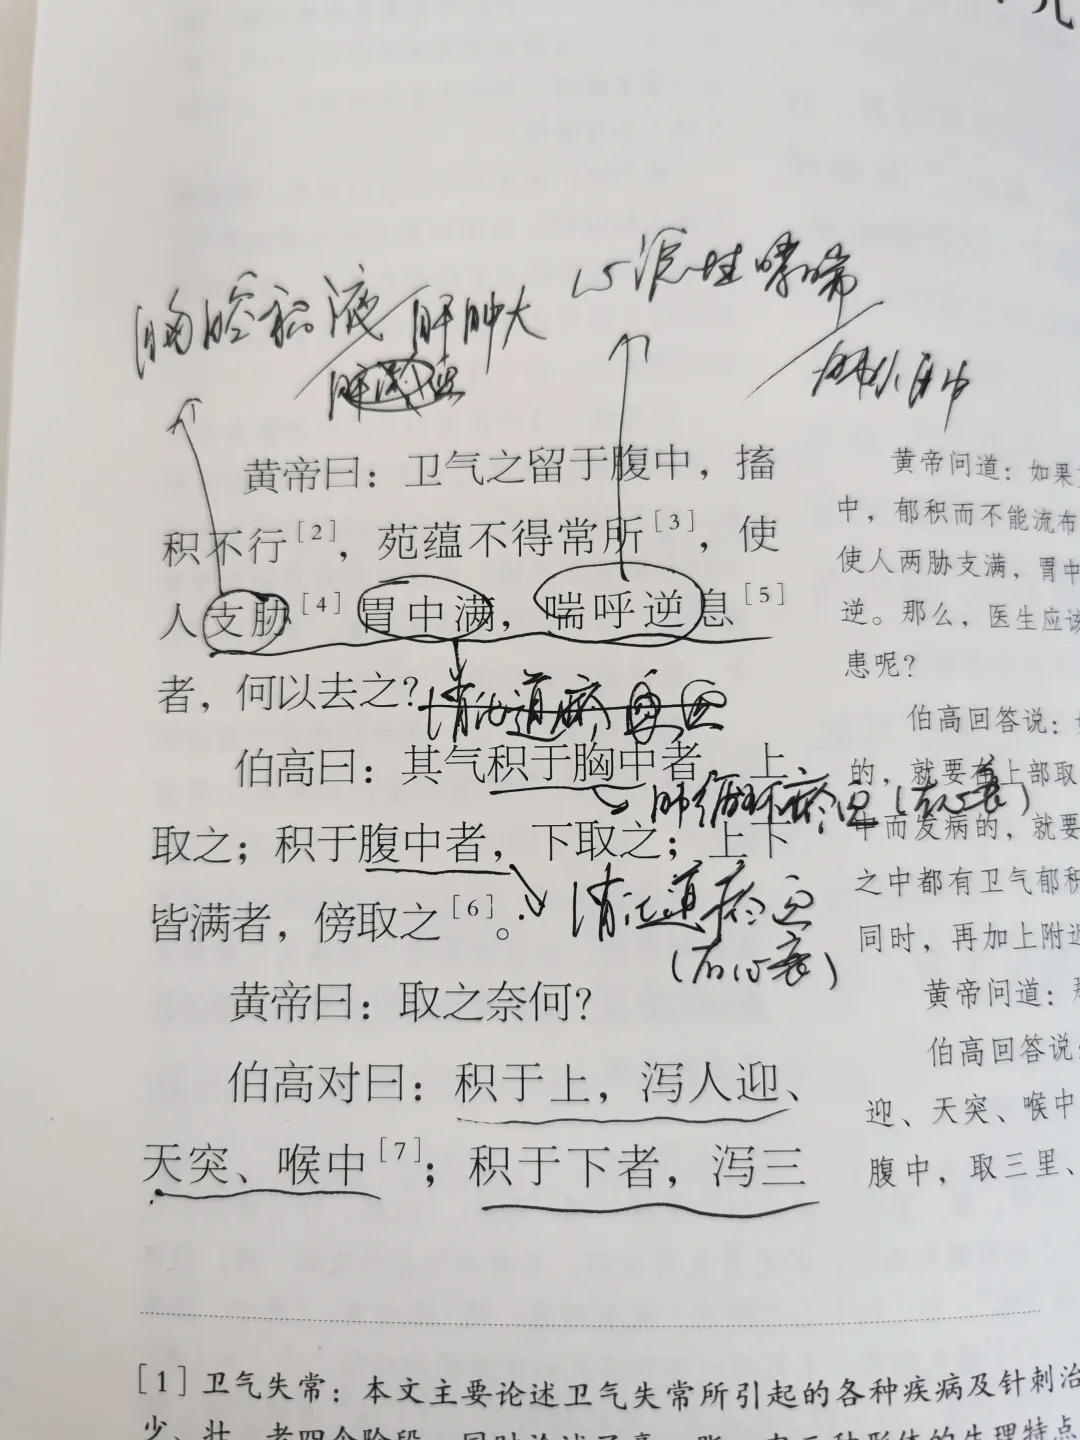 九
心源性哮喘
胸腔积液/肝肿大
肺水肿
黄帝曰：卫气之留于腹中，搐
积不行[2]，苑蕴不得常所[3]，使
人支胁[4]胃中满，喘呼逆息[5]
者，何以去之？
消化道瘀血
伯高曰：其气积于胸中者，上
肺循环瘀血(左心衰)
取之；积于腹中者，下取之；上下
消化道瘀血
皆满者，傍取之[6]。
(右心衰)
黄帝曰：取之奈何？
伯高对曰：积于上，泻人迎、
天突、喉中[7]；积于下者，泻三
黄帝问道：如果
中，郁积而不能流布
使人两胁支满，胃中
逆。那么，医生应该
患呢？
伯高回答说：
的，就要在上部取
中而发病的，就要
之中都有卫气郁积
同时，再加上附近
黄帝问道：
伯高回答说：
迎、天突、喉中
腹中，取三里、
[1]卫气失常：本文主要论述卫气失常所引起的各种疾病及针刺治